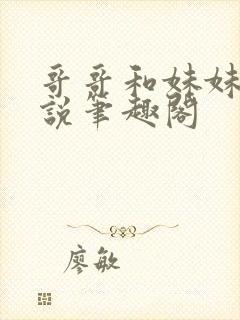 哥哥和妹妹
說筆趣閣
廖敏